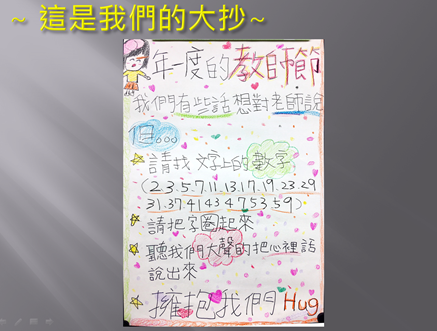 ~ 這是我們的大抄~
一年一度的教師節
我們有些話想對老師說
但。。。
請找文字上的數字
(2.3.5.7.11.13.17.19.23.29
31.37.41.43.47.53.59)
請把字圈起來
聽我們大聲的把心裡話
說出來
擁抱我們 Hug